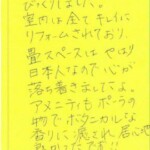 びっくりしました。
室内は全てキレイに
リフォームされており、
畳スペースはやはり
日本人なので心が
落ち着きましてよ。
アメニティもポーラの
物でボタニカルな
香りに癒され居心地
良かったです!!